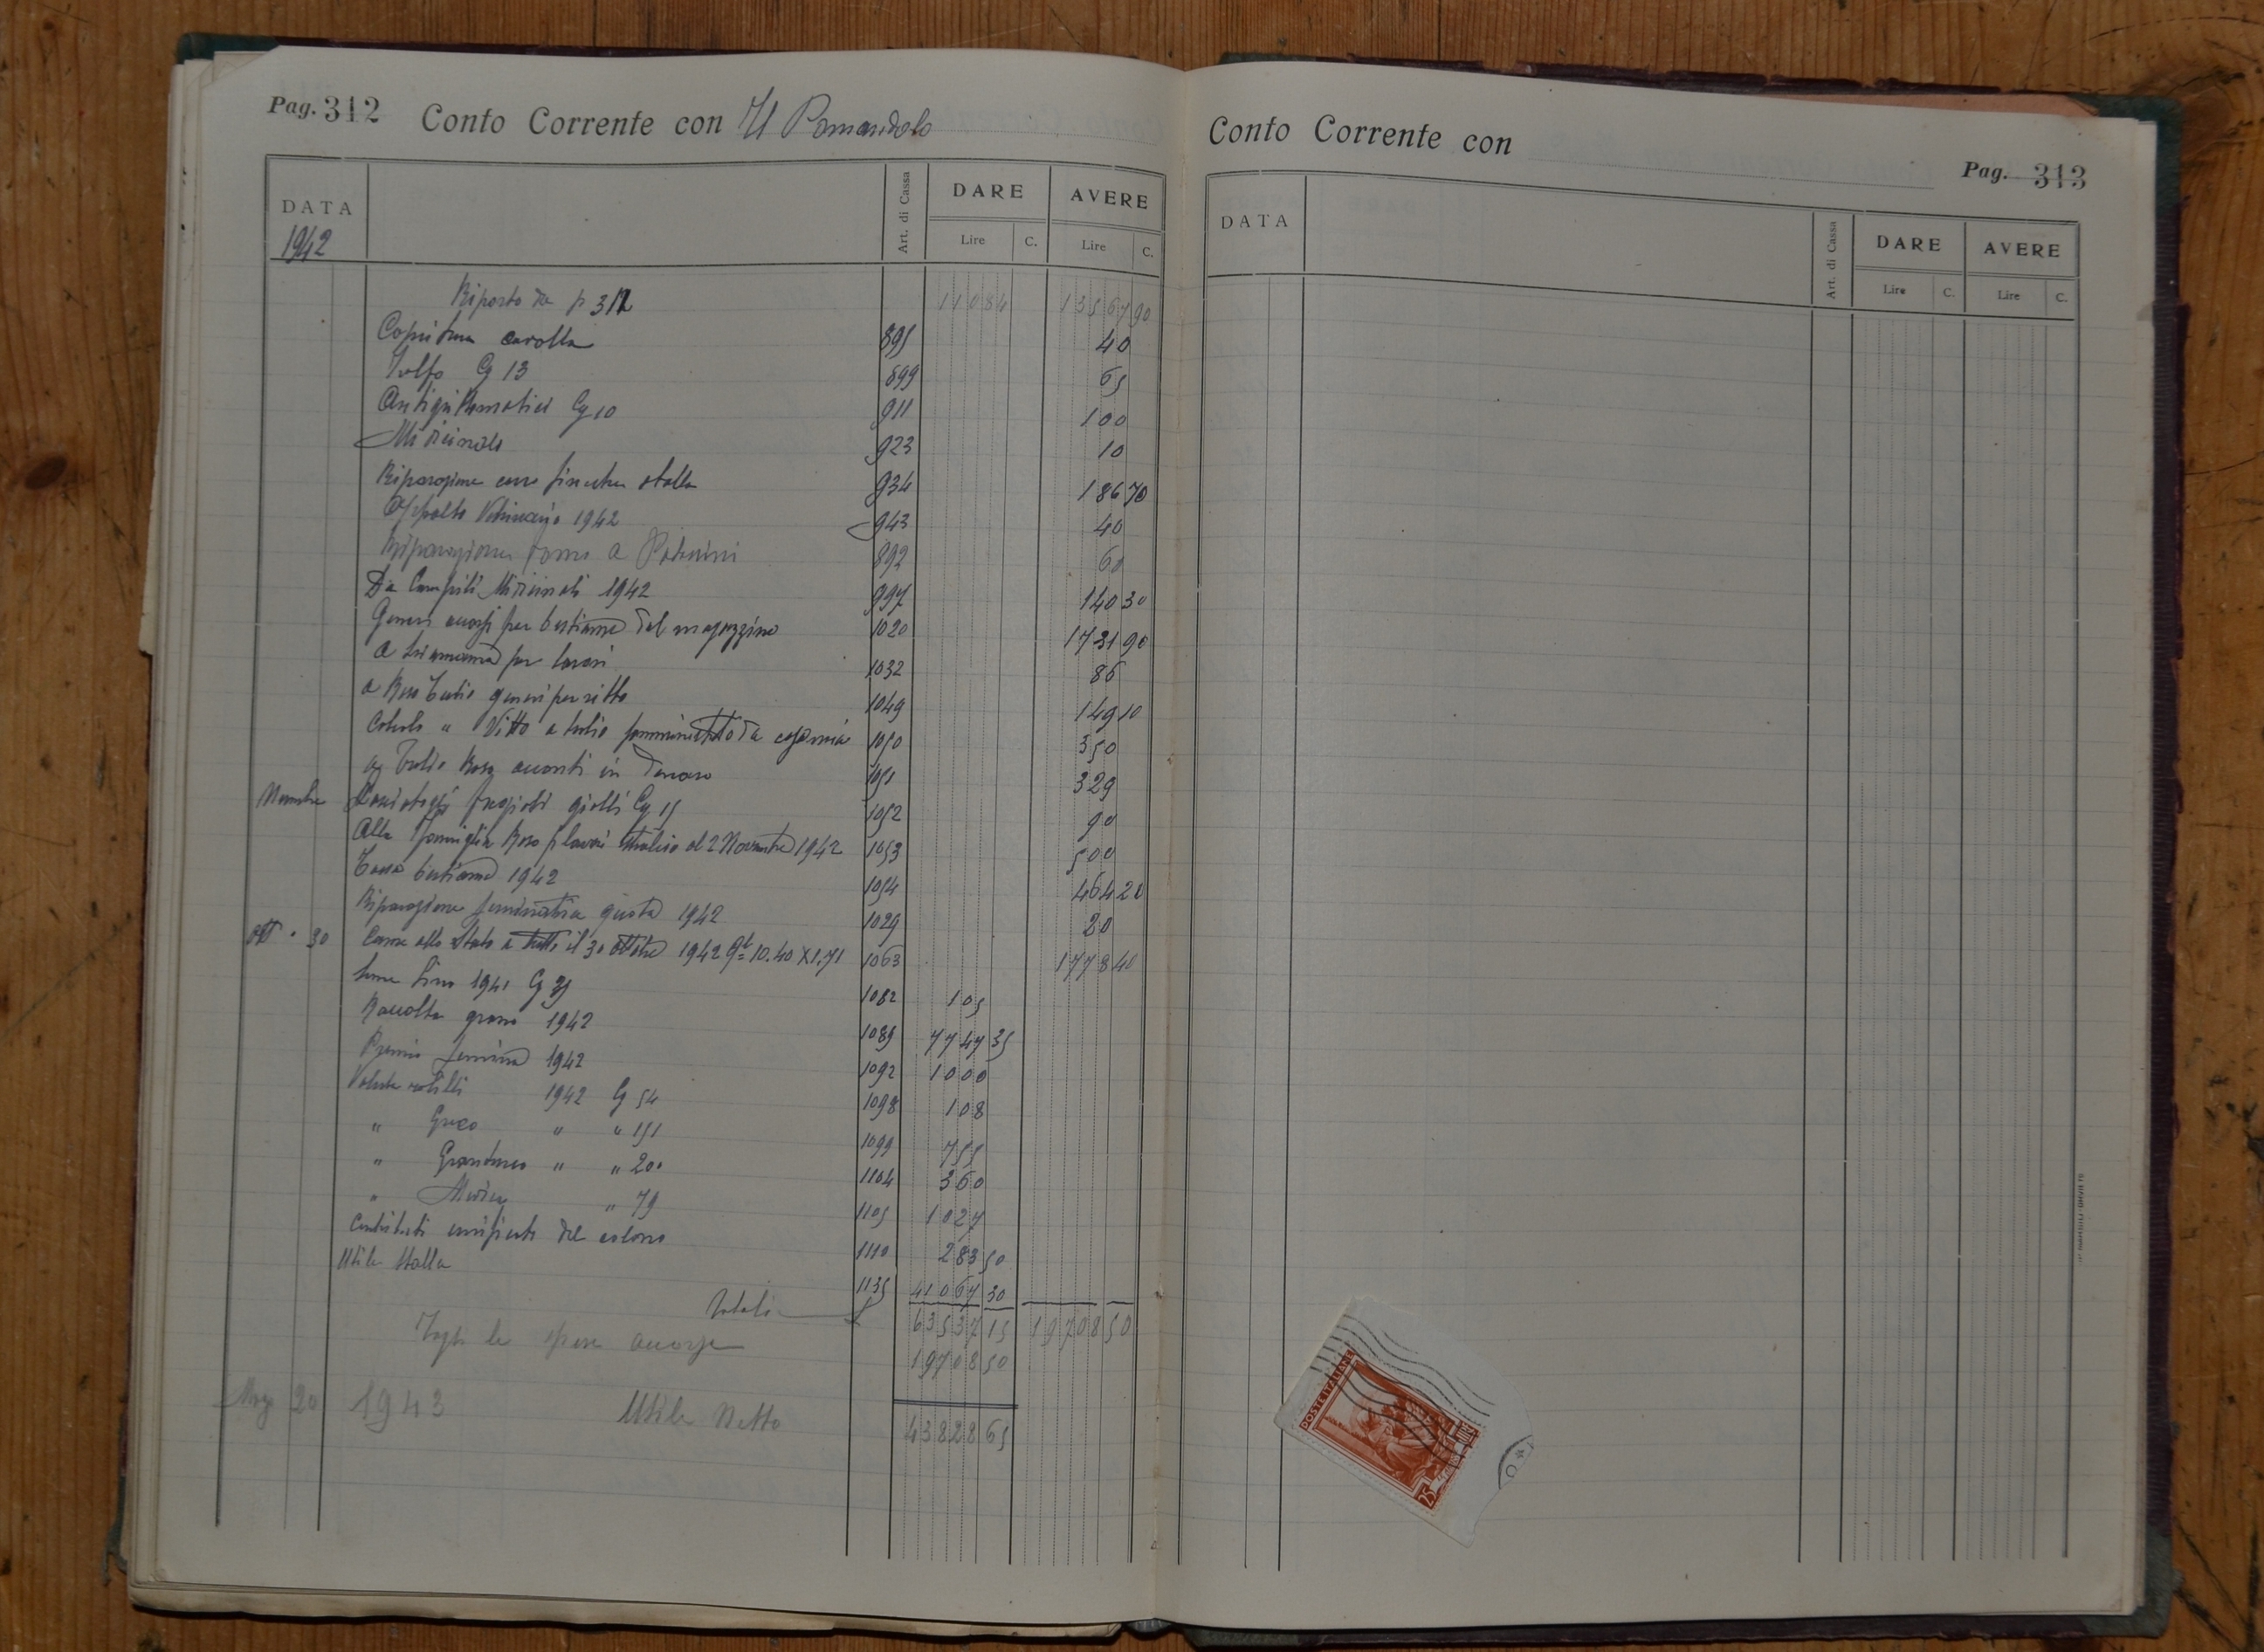 Pag. 312 Conto Corrente con Il Pomandolo
DATA 1942 Art. di Cassa DARE Lire C. AVERE Lire C.
Riporto da p 311 11084 13567 90
Copritura carolla 895 40
Solfo Cg 13 899 65
Cg 10 911 100
Medicinale 923 10
Riparazione carro finestra stalla 934 186 70
Appalto Veterinario 1942 943 40
Riparazione a 892 60
Da Medicinali 1942 997 140 30
Generi occorsi per bestiame dal magazzino 1020 1731 90
a per lavori 1032 86
a Roso Tulio generi per vitto 1049 149 10
" Vitto a Tulio da 1050 350
a Tulio Roso acconti in denaro 1051 329
Novembre fagioli gialli Cg 15 1052 90
Alla famiglia Roso p lavori al 2 Novembre 1942 1053 500
Tassa bestiame 1942 1054 464 20
Riparazione seminatrice quota 1942 1029 20
Ott. 30 Carne allo Stato a tutto il 30 ottobre 1942 Ql= 10.40 X 1.71 1063 1778 40
Seme Lino 1941 Cg 35 1082 105
Raccolta grano 1942 1089 7747 35
Premio semina 1942 1092 1000
Valuta 1942 Cg 54 1098 108
" " " 151 1099 755
" Granturco " " 200 1104 360
" Medica " 79 1105 1027
Contributi unificati del colono 1110 283 50
Utile Stalla 1135 41067 30
Totali 63537 15 19708 50
Togli le spese occorse 19708 50
20 1943 Utile Netto 43828 65
Conto Corrente con Pag. 313
DATA Art. di Cassa DARE Lire C. AVERE Lire C.
POSTE ITALIANE
25 LIRE